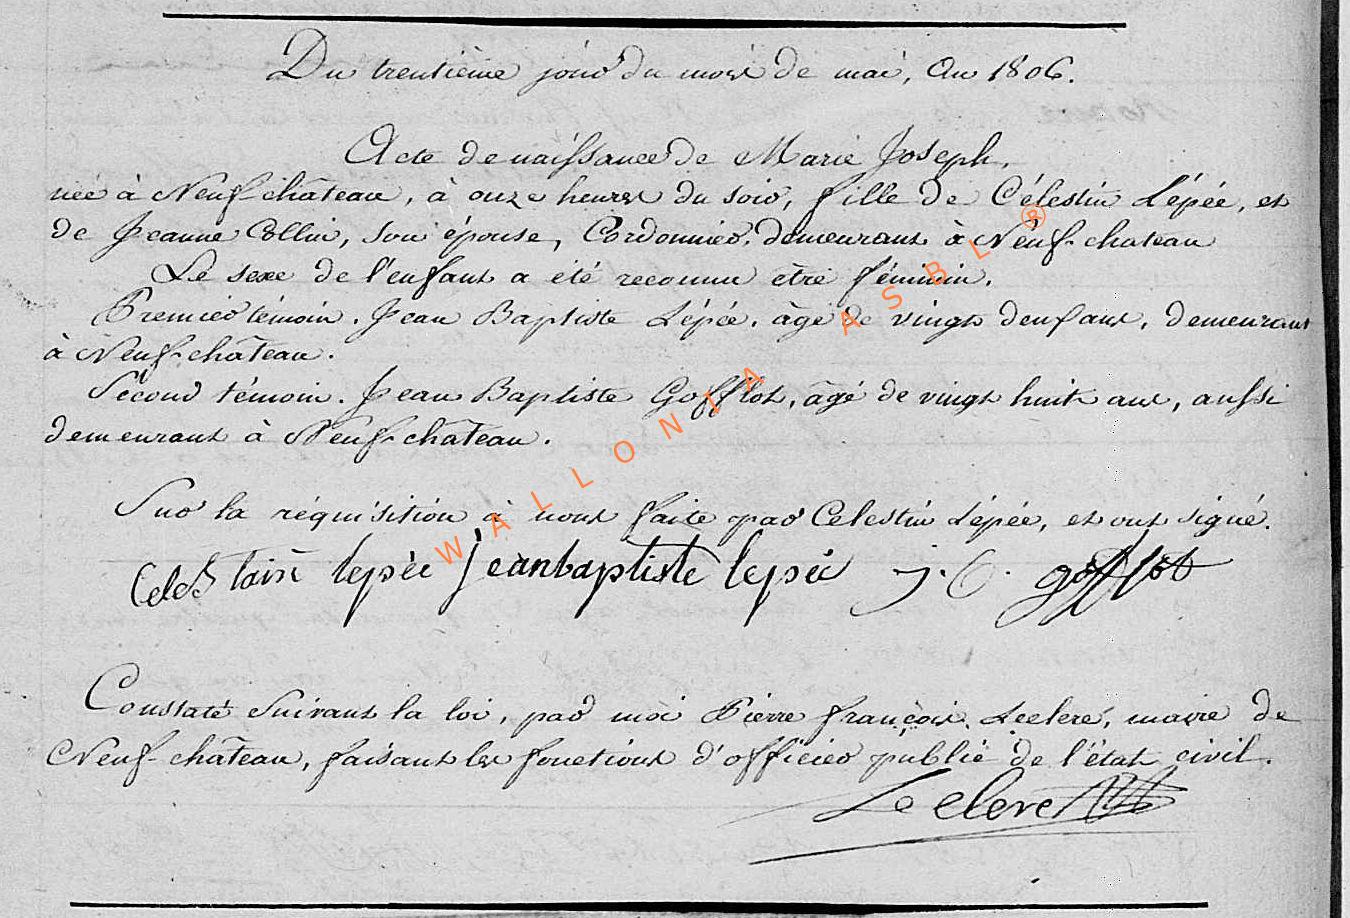 Du trentième jour du mois de mai, an 1806.
Acte de naissance de Marie Joseph,
née à Neuf-château, à onze heures du soir, fille de Célestin Lépée, et
de Jeanne Collin, son épouse, Cordonnier, demeurant à Neuf-chateau
Le sexe de l'enfant a été reconnu être féminin.
Premier témoin. Jean Baptiste Lépée, âgé de vingt deuf ans, demeurant
à Neuf-château.
Sécond témoin. Jean Baptiste Gofflot, âgé de vingt huit ans, aussi
demeurant à Neuf-château.
Sur la réquisition à nous faite par Celestin Lépée, et ont signé.
Celestain lepée jeanbaptiste lepée j. b. gofflot
Constaté suivant la loi, par moi Pierre françois Leclerc, maire de
Neuf-château, faisant les fonctions d'officier public de l'état civil.
Leclerc
WALLONIA ASBL ®